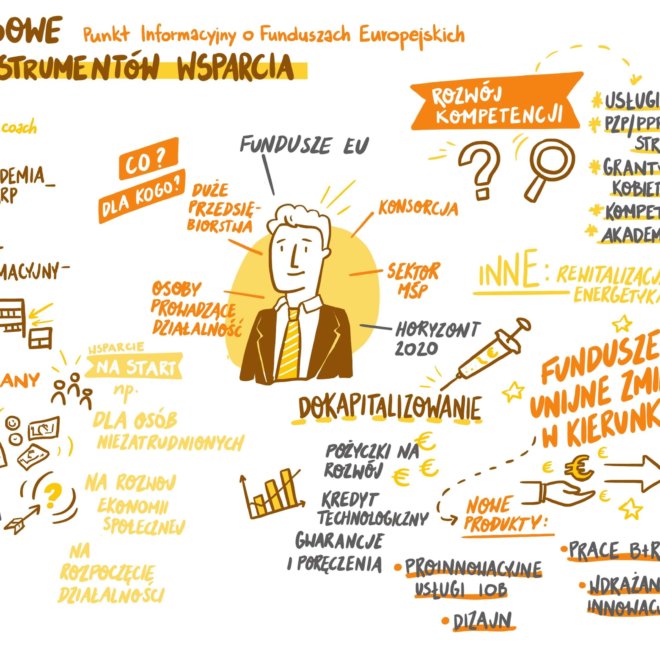 DOWE Punkt Informacyjny o Funduszach Europejskich
STRUMENTÓW WSPARCIA
coach
DEMIA_
ARP
MACYJNY-
ANY
CO?
DLA KOGO?
FUNDUSZE EU
DUŻE
PRZEDSIĘ-
BIORSTWA
KONSORCJA
OSOBY
PROWADZĄCE
DZIAŁALNOŚĆ
SEKTOR
MŚP
HORYZONT
2020
ROZWÓJ
KOMPETENCJI
USŁUGI
PZP/PPP
STR
GRANTY
KOBIET
KOMPET
AKADEM
INNE: REWITALIZACJA
ENERGETYKA
WSPARCIE
NA START
np.
DLA OSÓB
NIEZATRUDNIONYCH
NA ROZWÓJ
EKONOMII
SPOŁECZNEJ
NA
ROZPOCZĘCIE
DZIAŁALNOŚCI
DOKAPITALIZOWANIE
POŻYCZKI NA
ROZWÓJ
KREDYT
TECHNOLOGICZNY
GWARANCJE
I PORĘCZENIA
FUNDUSZE
UNIJNE ZMI
W KIERUNK
NOWE
PRODUKTY:
• PROINNOWACYJNE
USŁUGI IOB
• DIZAJN
• PRACE B+R
• WDRAŻAN
INNOWAC